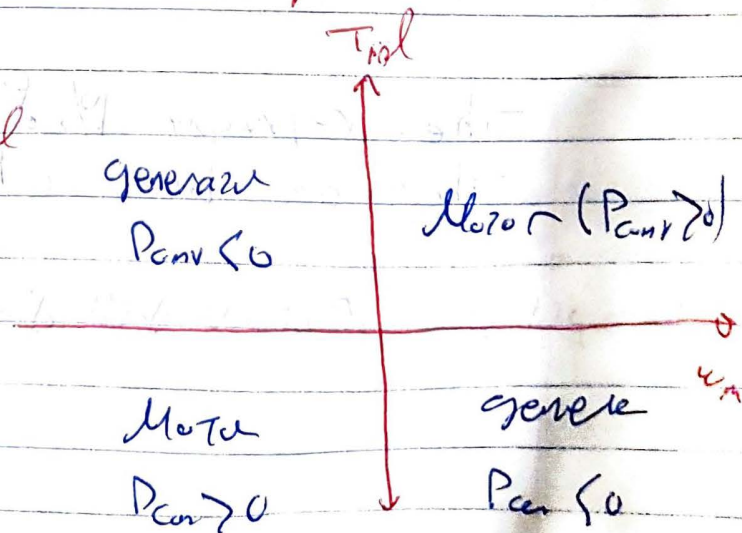 T_ind
generator
P_conv < 0
Motor (P_conv > 0)
ω_m
Motor
P_conv > 0
generator
P_conv < 0